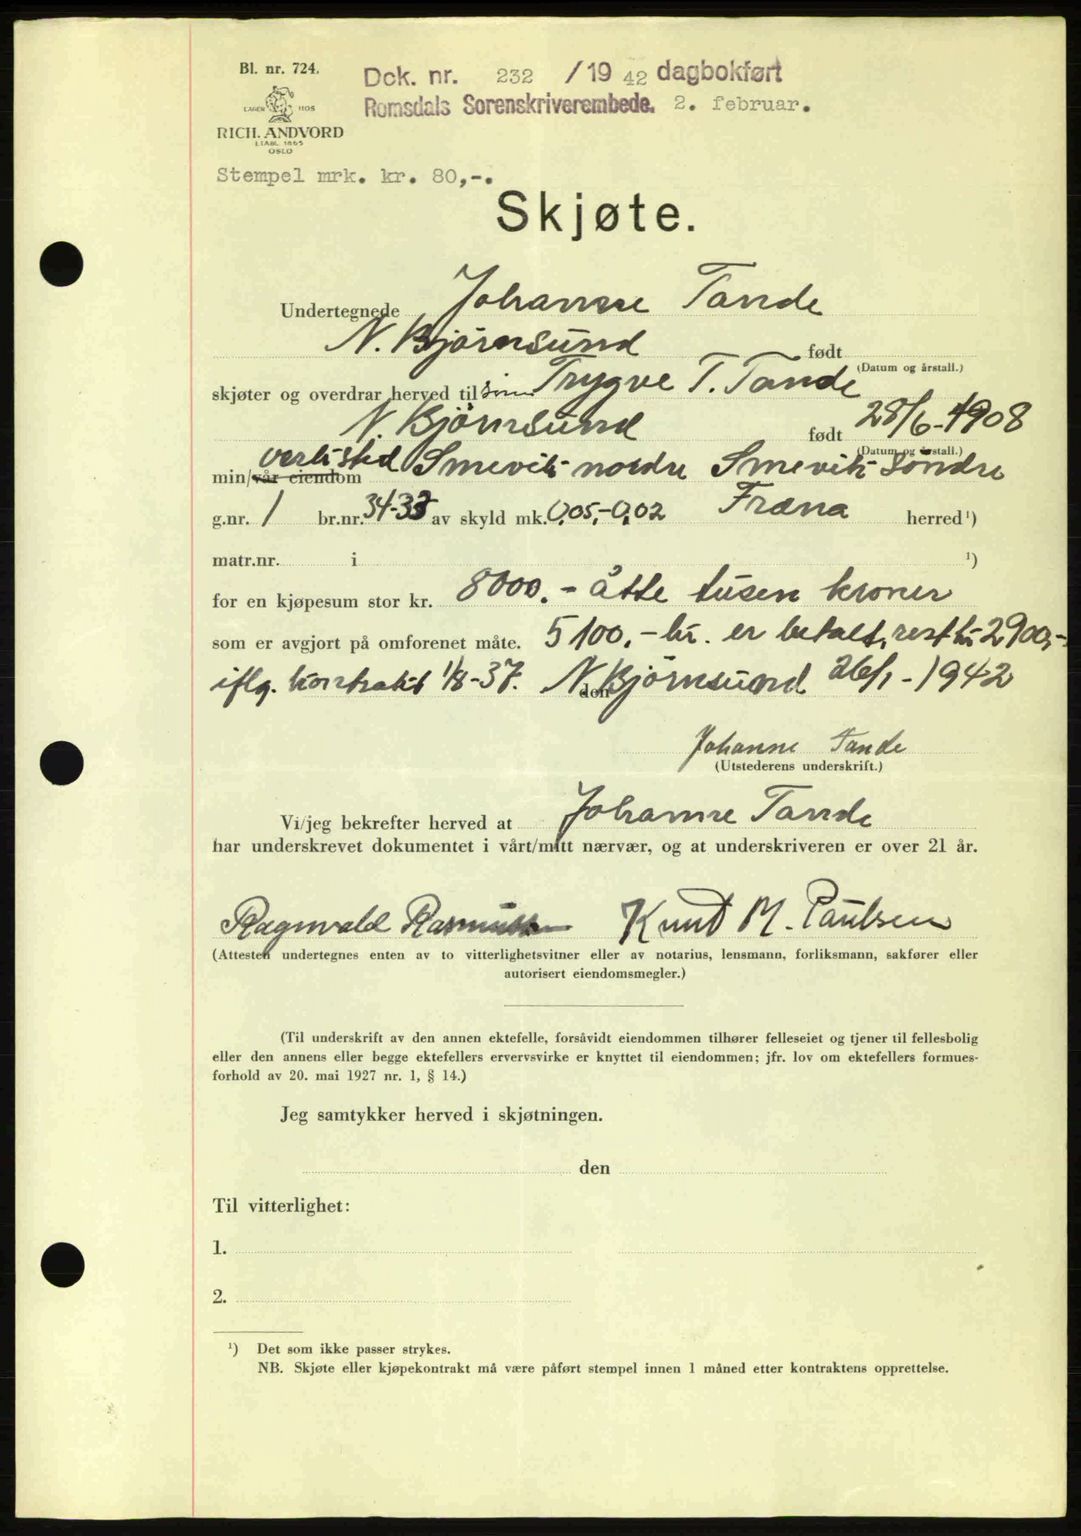 Bl. nr. 724.
LAGER HOS
RICH. ANDVORD
ETABL. 1865
OSLO
Dok. nr. 232 /19 42 dagbokført
Romsdals Sorenskriverembede. 2. februar.
Stempel mrk. kr. 80,-.
Skjøte.
Undertegnede Johanne Tande
N. Bjørnsund født
(Datum og årstall.)
skjøter og overdrar herved til Trygve T. Tande
N. Bjørnsund født 28/6-1908
(Datum og årstall.)
min/vår eiendom Smevik nordre Smevik Søndre
g.nr. 1 br.nr. 34-33 av skyld mk. 0,05,-0,02 Fræna herred¹)
matr.nr. i ¹)
for en kjøpesum stor kr. 8000.- åtte tusen kroner
som er avgjort på omforenet måte. 5100,- kr. er betalt, rest kr 2900,-
iflg. kontrakt 1/8-37. N. Bjørnsund den 26/1-1942
Johanne Tande
(Utstederens underskrift.)
Vi/jeg bekrefter herved at Johanne Tande
har underskrevet dokumentet i vårt/mitt nærvær, og at underskriveren er over 21 år.
Ragnvald Knut M. Paulsen
(Attesten undertegnes enten av to vitterlighetsvitner eller av notarius, lensmann, forliksmann, sakfører eller
autorisert eiendomsmegler.)
(Til underskrift av den annen ektefelle, forsåvidt eiendommen tilhører felleseiet og tjener til fellesbolig
eller den annens eller begge ektefellers ervervsvirke er knyttet til eiendommen; jfr. lov om ektefellers formues-
forhold av 20. mai 1927 nr. 1, § 14.)
Jeg samtykker herved i skjøtningen.
den
Til vitterlighet:
1.
2.
¹) Det som ikke passer strykes.
NB. Skjøte eller kjøpekontrakt må være påført stempel innen 1 måned etter kontraktens opprettelse.